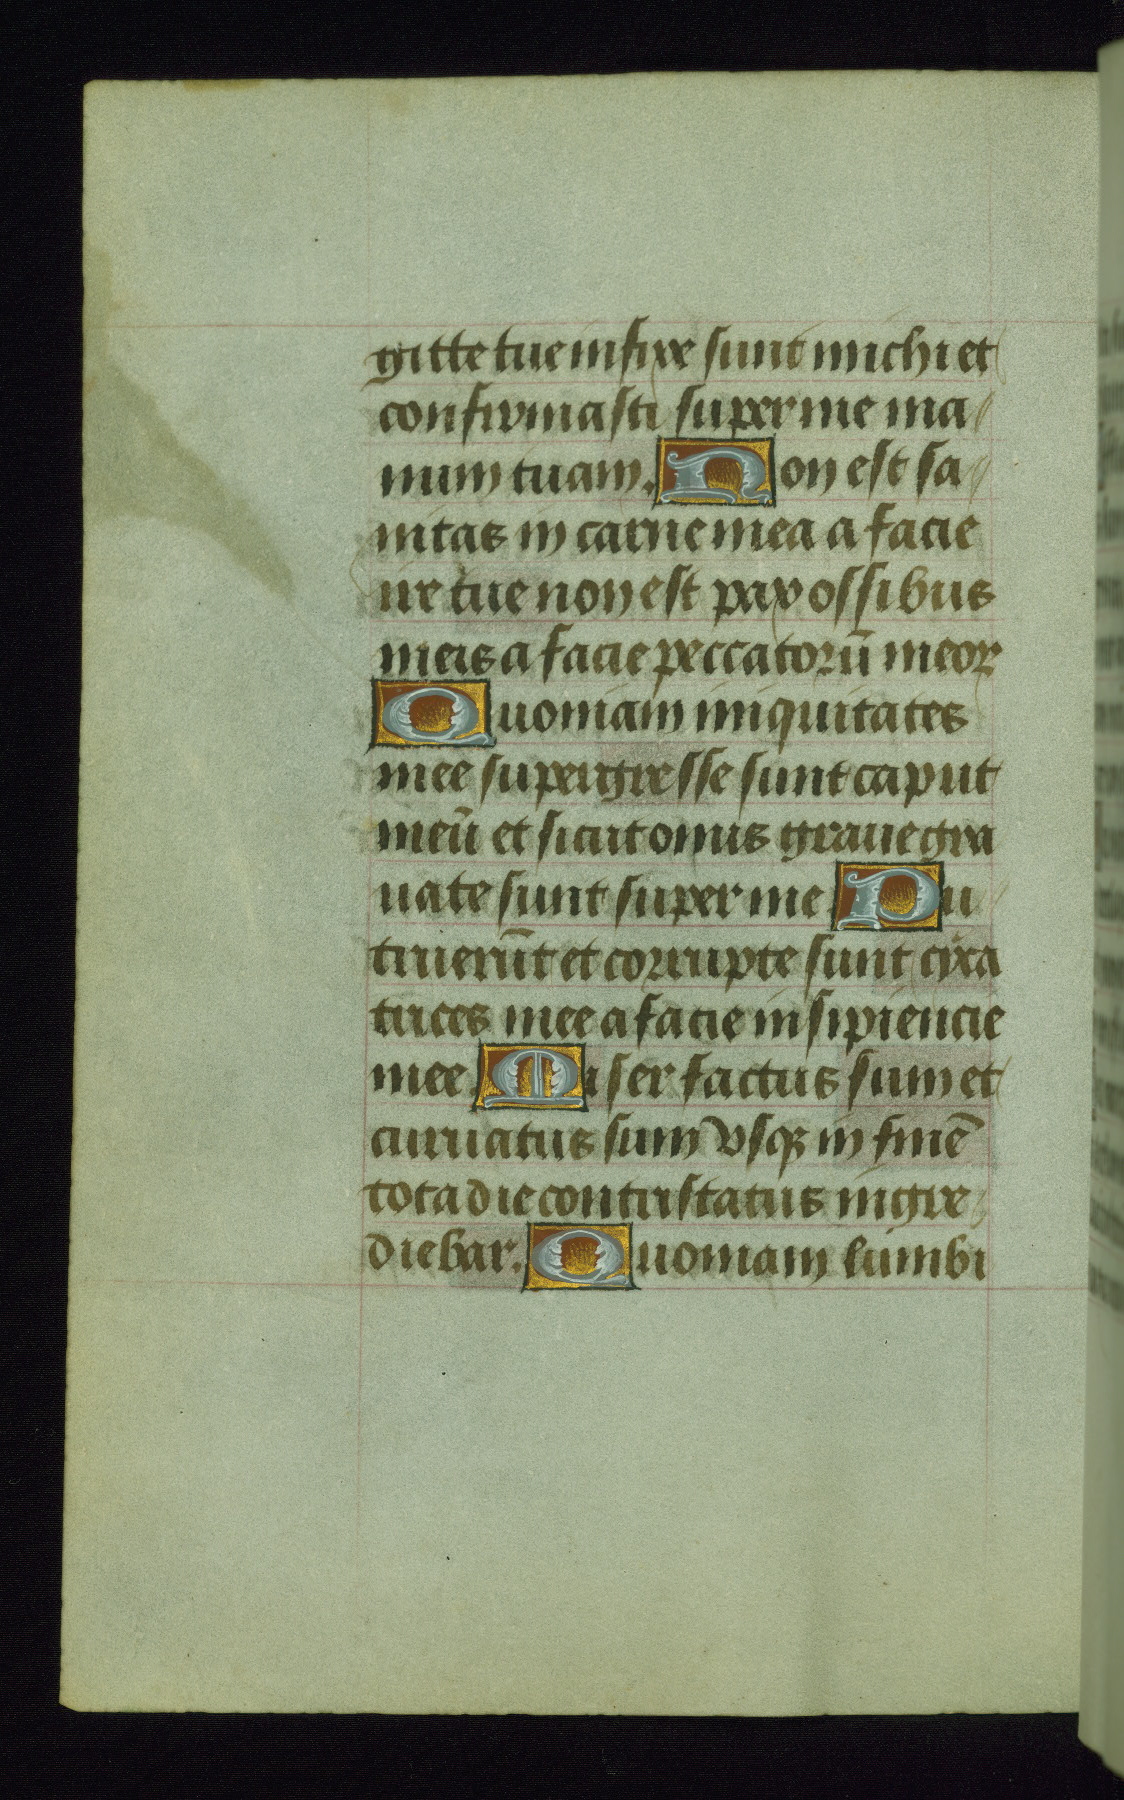 gitte tue infixe sunt michi et
confirmasti super me ma
num tuam. Non est sa
nitas in carne mea a facie
ire tue non est pax ossibus
meis a facie peccatorū meor
Quoniam iniquitates
mee supergresse sunt caput
meū et sicut onus graue gra
uate sunt super me Pu
truerūt et corrupte sunt cyca
trices mee a facie insipiencie
mee. Miser factus sum et
curuatus sum vsqꝫ in finē
tota die contristatus ingre
diebar. Quoniam lumbi